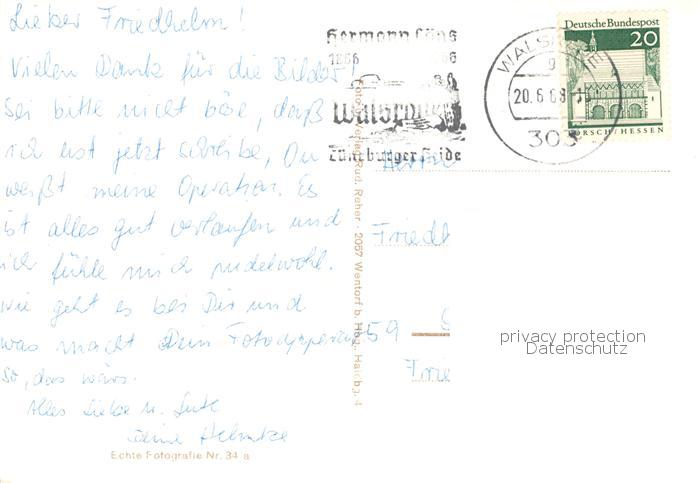 Lieber Friedhelm!
Vielen Dank für die Bilder!
Sei bitte nicht böse, daß
ich erst jetzt schreibe, Du
weißt meine Operation. Es
ist alles gut verlaufen und
ich fühle mich pudelwohl.
Wie geht es bei Dir und
was macht Dein Fotoapparat
So, das wärs.
Alles Liebe u. Gute
Deine
Echte Fotografie Nr. 34 a
Hermann Löns
1866
66
Walsrode
Lüneburger Heide
WALSRODE
g
20.6.68
303
Deutsche Bundespost
20
LORSCH/HESSEN
Verlag Rud. Reher · 2057 Wentorf b. Hbg., Haidbg. 4
Herrn
Friedh
59
Frie
privacy protection
Datenschutz